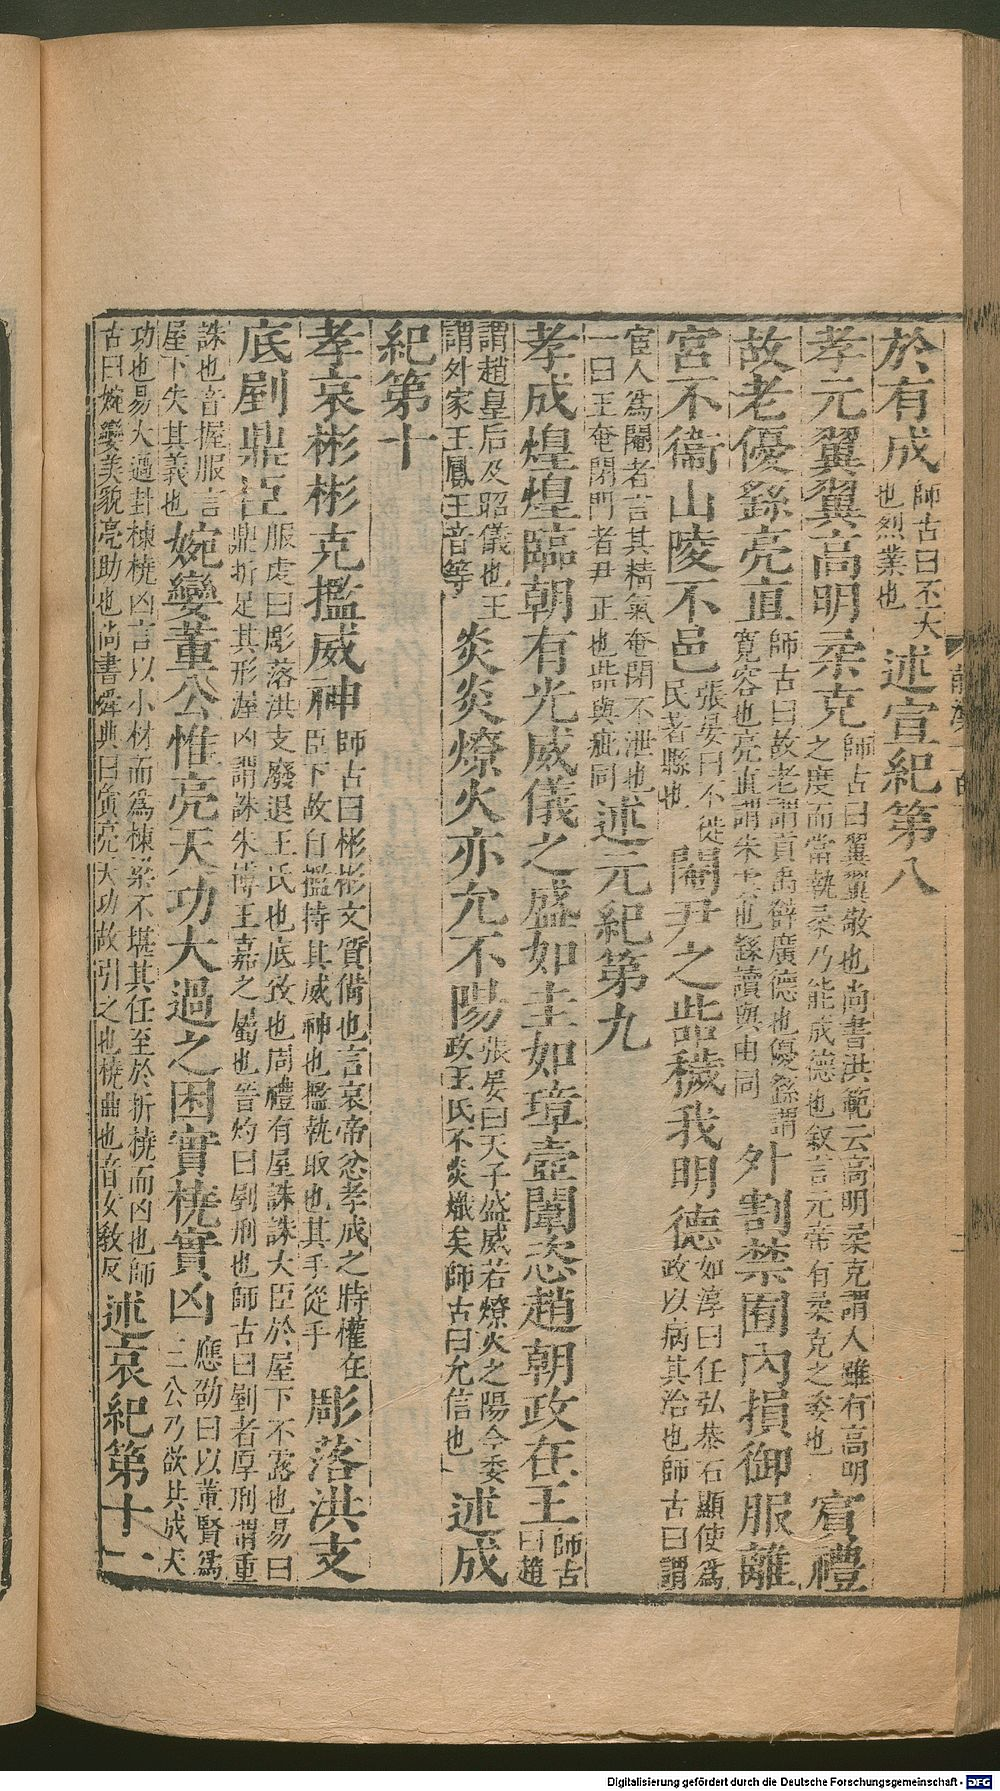 於有成師古曰丕大也烈業也述宣紀第八
孝元翼翼高明柔克師古曰翼翼敬也尚書洪範云高明柔克謂人雖有高明之度而當執柔乃能成德也叙言元帝有柔克之委也賓禮
故老優繇亮直師古曰故老謂貢禹薛廣德也優繇謂寬容也亮直謂朱雲也繇讀與由同外割禁囿內損御服離
宮不衞山陵不邑張晏曰不徙民著縣也閹尹之呰穢我明德如淳曰任弘恭石顯使為政以病其治也師古曰謂
宦人為閹者言其精氣奄閉不泄也一曰主奄閉門者尹正也呰與疵同述元紀第九
孝成煌煌臨朝有光威儀之盛如圭如璋壼闈恣趙朝政在王師古曰趙
謂趙皇后及昭儀也王謂外家王鳳王音等炎炎燎火亦允不陽張晏曰天子盛威若燎火之陽今委政王氏不炎熾矣師古曰允信也述成
紀第十
孝哀彬彬克㩜威神師古曰彬彬文質備也言哀帝忿孝成之時權在臣下故自㩜持其威神也㩜執取也其手從手彫落洪支
底剭鼎臣服虔曰彫落洪支廢退王氏也底致也周禮有屋誅誅大臣於屋下不露也易曰鼎折足其形渥凶謂誅朱博王嘉之屬也晉灼曰剭刑也師古曰剭者厚刑謂重
誅也音握服言屋下失其義也婉孌董公惟亮天功大過之困實橈實凶應劭曰以董賢為三公乃欲共成天
功也易大過卦棟橈凶言以小材而為棟梁不堪其任至於折橈而凶也師古曰婉孌美貌亮助也尚書舜典曰寅亮天功故引之也橈曲也音女教反述哀紀第十一
Digitalisierung gefördert durch die Deutsche Forschungsgemeinschaft - DFG